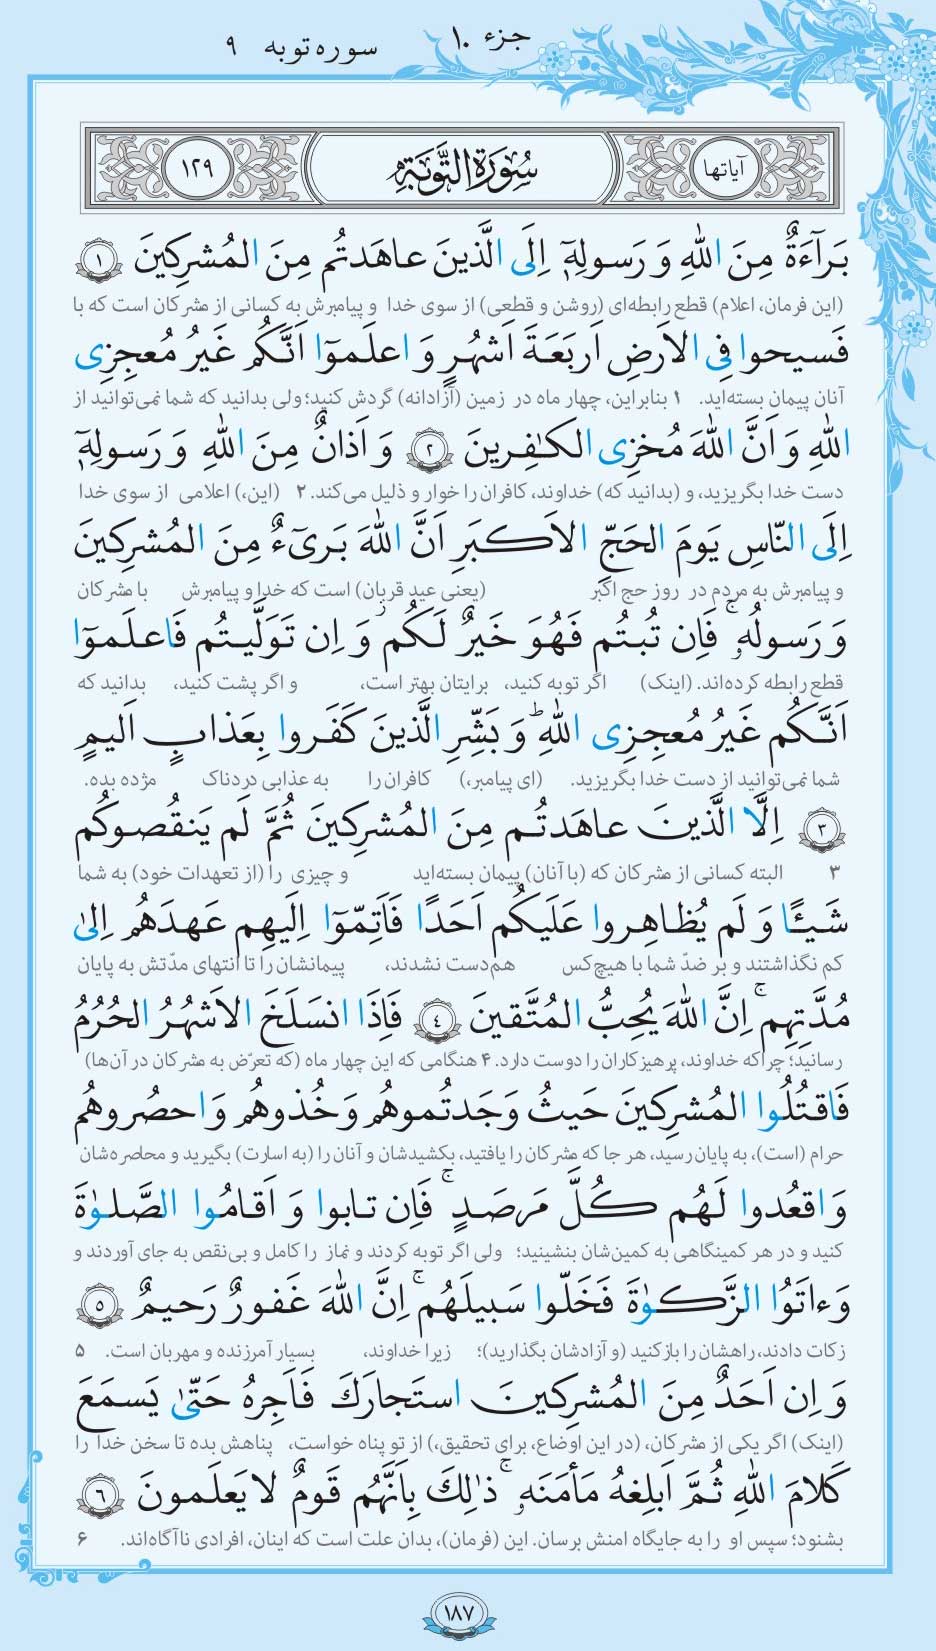 جزء ۱۰
سوره توبه ۹
آیاتها
سُورَةُ التَّوبَةِ
۱۲۹
بَرآءَةٌ مِنَ اللّٰهِ وَ رَسولِهٖٓ اِلَى الَّذينَ عاهَدتُم مِنَ المُشرِكينَ ۱
(این فرمان، اعلام) قطع رابطه‌ای (روشن و قطعی) از سوی خدا و پیامبرش به کسانی از مشرکان است که با
فَسيحوا فِى الاَرضِ اَربَعَةَ اَشهُرٍ وَ اعلَموٓا اَنَّكُم غَيرُ مُعجِزِى
آنان پیمان بسته‌اید. ۱ بنابراین، چهار ماه در زمین (آزادانه) گردش کنید؛ ولی بدانید که شما نمی‌توانید از
اللّٰهِ وَ اَنَّ اللّٰهَ مُخزِى الكٰفِرينَ ۲ وَ اَذانٌ مِنَ اللّٰهِ وَ رَسولِهٖٓ
دست خدا بگریزید، و (بدانید که) خداوند، کافران را خوار و ذلیل می‌کند. ۲ (این،) اعلامی از سوی خدا
اِلَى النّاسِ يَومَ الحَجِّ الاَكبَرِ اَنَّ اللّٰهَ بَرىٓءٌ مِنَ المُشرِكينَ
و پیامبرش به مردم در روز حج اکبر (یعنی عید قربان) است که خدا و پیامبرش با مشرکان
وَ رَسولُهٗ ۚ فَاِن تُبتُم فَهُوَ خَيرٌ لَكُم ۖ وَ اِن تَوَلَّيتُم فَاعلَموٓا
قطع رابطه کرده‌اند. (اینک) اگر توبه کنید، برایتان بهتر است، و اگر پشت کنید، بدانید که
اَنَّكُم غَيرُ مُعجِزِى اللّٰهِ ؕ وَ بَشِّرِ الَّذينَ كَفَروا بِعَذابٍ اَليمٍ
شما نمی‌توانید از دست خدا بگریزید. (ای پیامبر،) کافران را به عذابی دردناک مژده بده.
۳ اِلَّا الَّذينَ عاهَدتُم مِنَ المُشرِكينَ ثُمَّ لَم يَنقُصوكُم
۳ البته کسانی از مشرکان که (با آنان) پیمان بسته‌اید و چیزی را (از تعهدات خود) به شما
شَيـًٔا وَ لَم يُظاهِروا عَلَيكُم اَحَدًا فَاَتِمّوٓا اِلَيهِم عَهدَهُم اِلىٰ
کم نگذاشتند و بر ضدّ شما با هیچ‌کس هم‌دست نشدند، پیمانشان را تا انتهای مدّتش به پایان
مُدَّتِهِم ۚ اِنَّ اللّٰهَ يُحِبُّ المُتَّقينَ ٤ فَاِذَا انسَلَخَ الاَشهُرُ الحُرُمُ
رسانید؛ چراکه خداوند، پرهیزکاران را دوست دارد. ۴ هنگامی که این چهار ماه (که تعرّض به مشرکان در آن‌ها)
فَاقتُلُوا المُشرِكينَ حَيثُ وَجَدتُموهُم وَ خُذوهُم وَ احصُروهُم
حرام (است)، به پایان رسید، هر جا که مشرکان را یافتید، بکشیدشان و آنان را (به اسارت) بگیرید و محاصره‌شان
وَ اقعُدوا لَهُم كُلَّ مَرصَدٍ ۚ فَاِن تابوا وَ اَقامُوا الصَّلوٰةَ
کنید و در هر کمینگاهی به کمین‌شان بنشینید؛ ولی اگر توبه کردند و نماز را کامل و بی‌نقص به جای آوردند و
وَ ءاتَوُا الزَّكوٰةَ فَخَلّوا سَبيلَهُم ۚ اِنَّ اللّٰهَ غَفورٌ رَحيمٌ ۵
زکات دادند، راهشان را باز کنید (و آزادشان بگذارید)؛ زیرا خداوند، بسیار آمرزنده و مهربان است. ۵
وَ اِن اَحَدٌ مِنَ المُشرِكينَ استَجارَكَ فَاَجِرهُ حَتّىٰ يَسمَعَ
(اینک) اگر یکی از مشرکان، (در این اوضاع، برای تحقیق،) از تو پناه خواست، پناهش بده تا سخن خدا را
كَلامَ اللّٰهِ ثُمَّ اَبلِغهُ مَأمَنَهٗ ۚ ذٰلِكَ بِاَنَّهُم قَومٌ لا يَعلَمونَ ۶
بشنود؛ سپس او را به جایگاه امنش برسان. این (فرمان)، بدان علت است که اینان، افرادی ناآگاه‌اند. ۶
۱۸۷